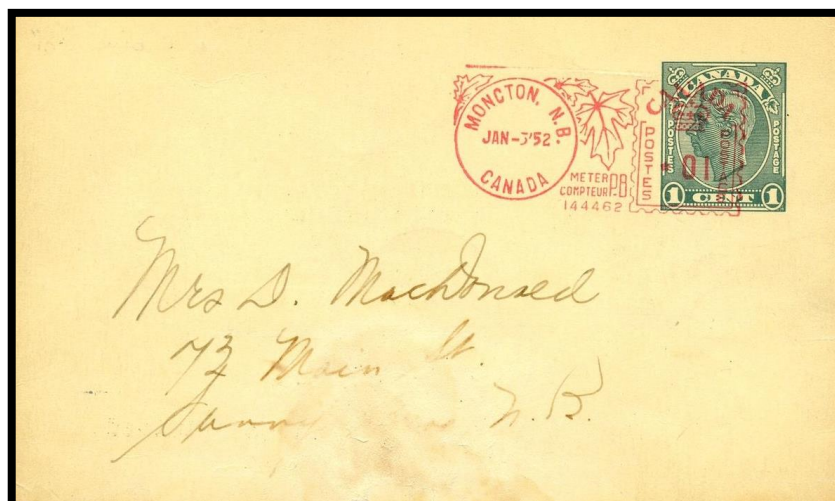 MONCTON, N.B.
JAN-3'52
CANADA
METER
COMPTEUR P.B.
144462
POSTES
CANADA
POSTES
POSTAGE
01
1 CENT 1
Mrs D. MacDonald
73 Main St.
N.B.